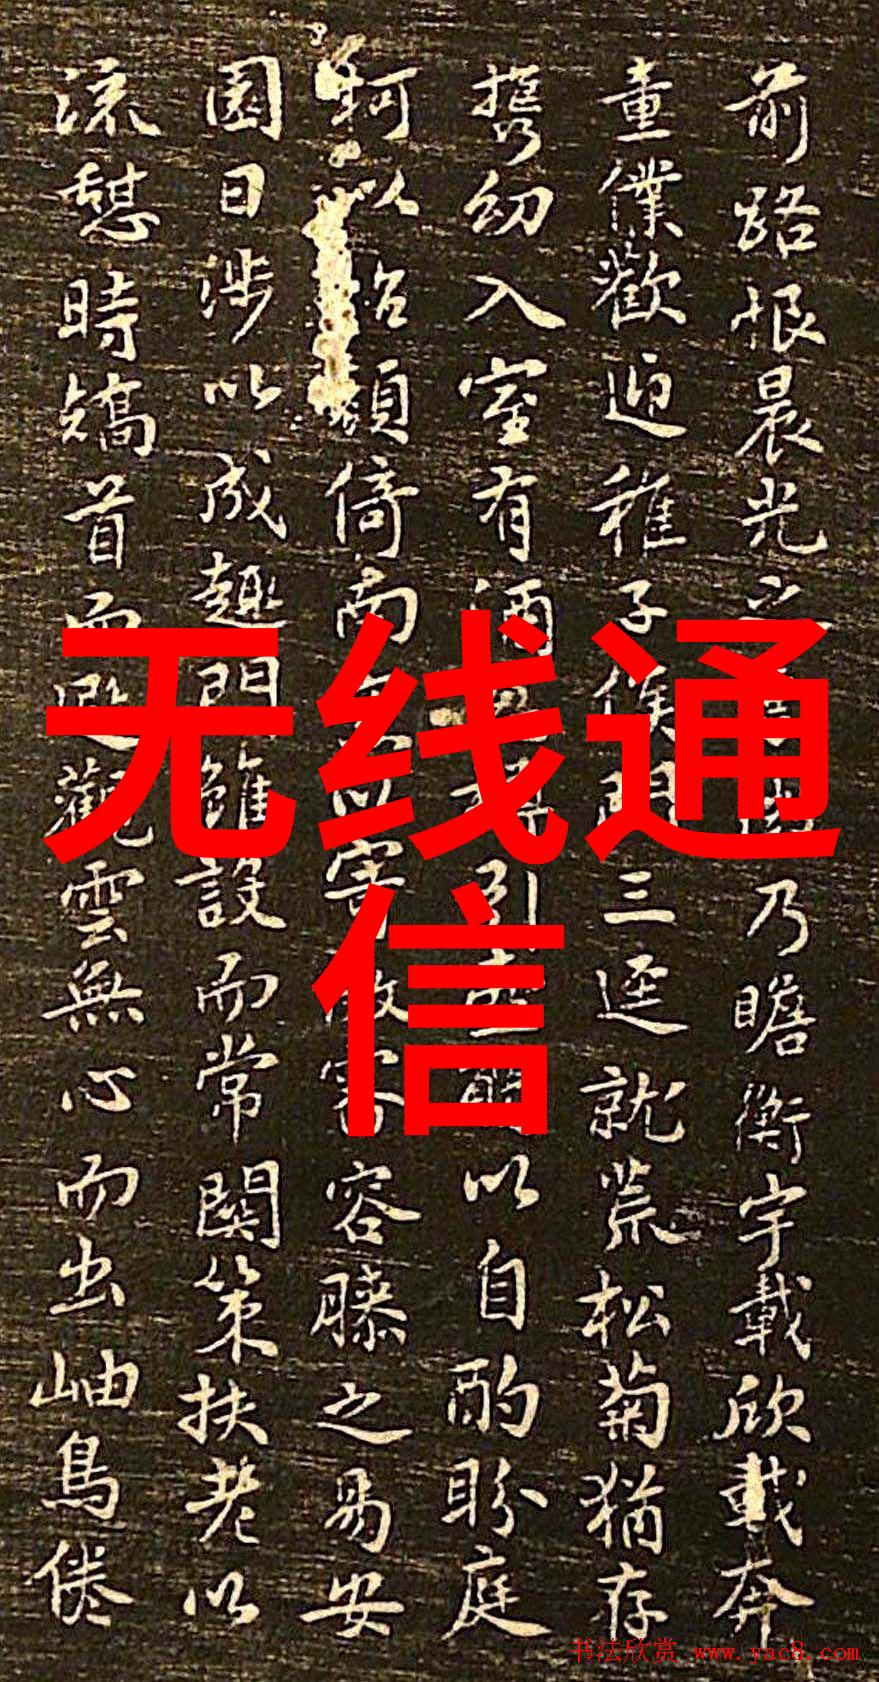 前路恨晨光之乃瞻衡宇載欣載奔
童僕歡迎稚子候門三逕就荒松菊猶存
攜幼入室有酒引壺觴以自酌盼庭
柯以怡顏倚南以寄容膝之易安
園日涉以成趣門雖設而常關策扶老以
流憩時矯首而遐觀雲無心而出岫鳥倦
无线通
信
书法欣赏 www.yac8.com